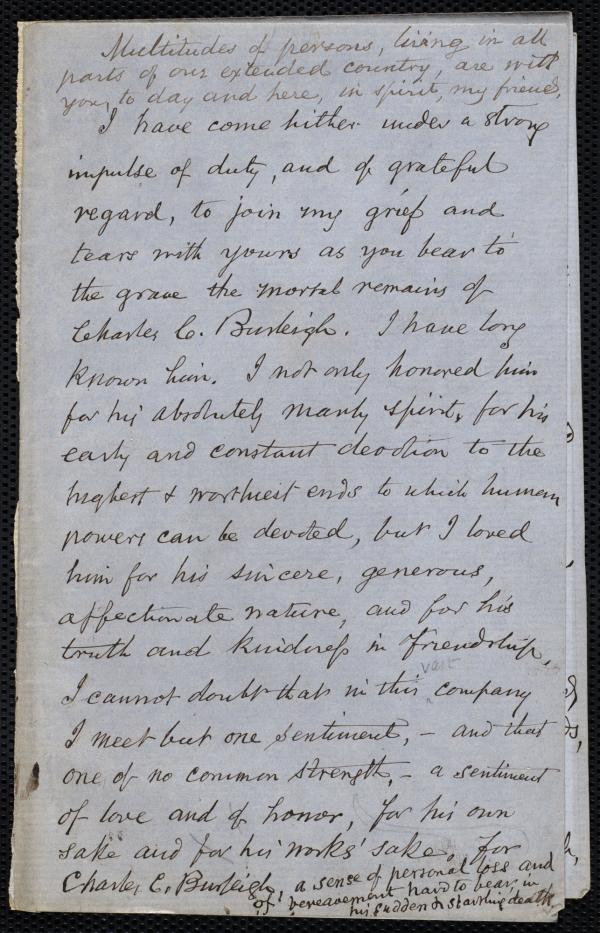 Multitudes of persons, living in all
parts of our extended country, are with
you, to day and here, in spirit, my friends.
I have come hither under a strong
impulse of duty, and of grateful
regard, to join my grief and
tears with yours as you bear to
the grave the mortal remains of
Charles C. Burleigh. I have long
known him. I not only honored him
for his absolutely manly spirit, for his
early and constant devotion to the
highest & worthiest ends to which human
powers can be devoted, but I loved
him for his sincere, generous,
affectionate nature, and for his
truth and kindness in friendship.
vast
I cannot doubt that in this company
I meet but one sentiment, – and that
one of no common strength, – a sentiment
of love and of honor, for his own
sake and for his works' sake, for
Charles C. Burleigh, a sense of personal loss and
of bereavement hard to bear, in
his sudden & startling death